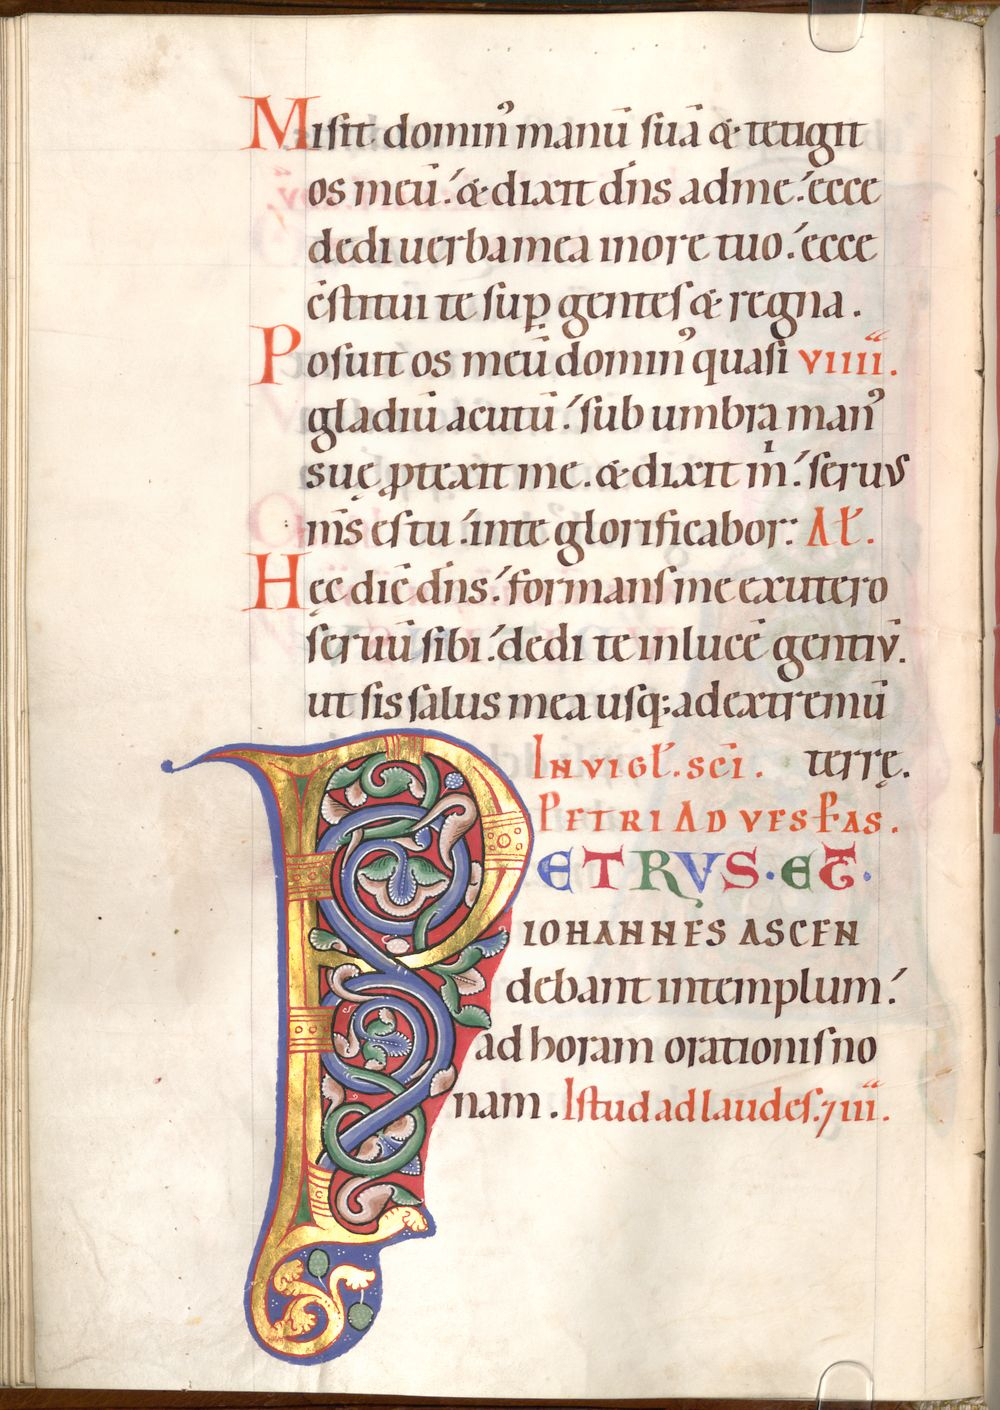 Misit domin᾽ manū suā & tetigit
os meū. & dixit dn̄s ad me. ecce
dedi uerba mea in ore tuo. ecce
c̄stitui te sup̲ gentes & regna.
Posuit os meū domin᾽ quasi VIIII.
gladiū acutū. sub umbra man᾽
suę ꝓtexit me. & dixit m̍. seruus
m̄s es tu. in te glorificabor: AƗ.
Hęc diē dn̄s. formans me ex utero
seruū sibi. dedi te in lucē gentiū.
ut sis salus mea usq; ad extremū
IN VIGƗ. sc̄i. terrę.
PETRI AD VESPAS.
PETRVS · ET ·
IOHANNES ASCEN
debant in templum.
ad horam orationis no
nam. Istud ad laudes. 7 iii.